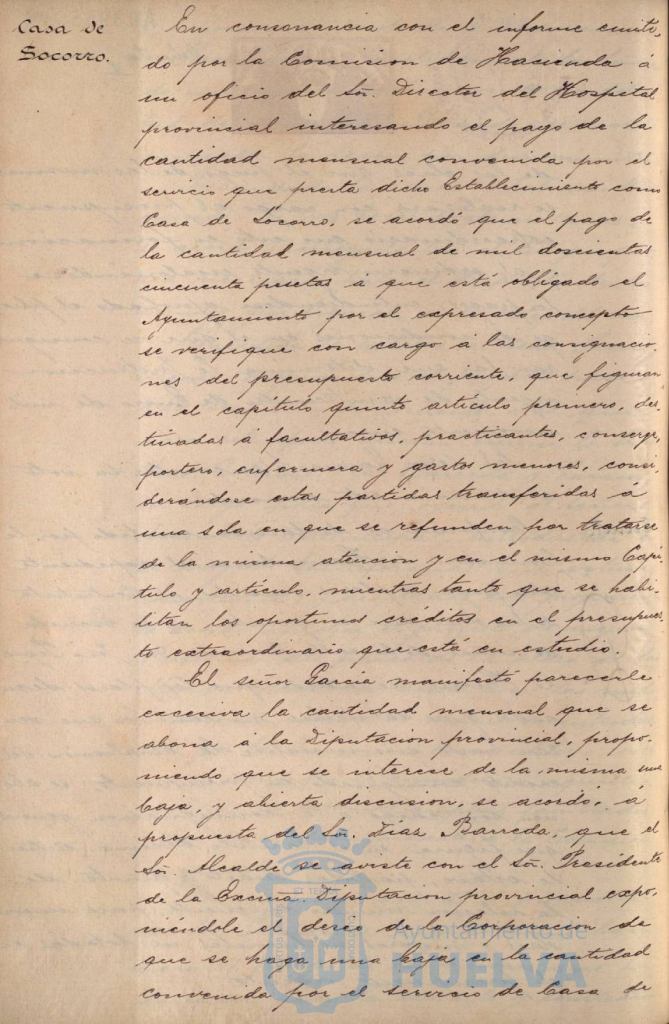 Casa de
Socorro.
En consonancia con el informe emiti-
do por la Comision de Hacienda á
un oficio del Sr. Director del Hospital
provincial interesando el pago de la
cantidad mensual convenida por el
servicio que presta dicho Establecimiento como
Casa de Socorro, se acordó que el pago de
la cantidad mensual de mil doscientas
cincuenta pesetas á que está obligado el
Ayuntamiento por el expresado concepto
se verifique con cargo á las consignacio-
nes del presupuesto corriente, que figuran
en el capítulo quinto artículo primero, des-
tinadas á facultativos, practicantes, conserge,
portero, enfermera y gastos menores, consi-
derándose estas partidas transferidas á
una sola en que se refunden por tratarse
de la misma atencion y en el mismo Capí-
tulo y artículo, mientras tanto que se habi-
litan los oportunos créditos en el presupues-
to extraordinario que está en estudio.
El señor García manifestó parecerle
excesiva la cantidad mensual que se
abona á la Diputacion provincial, propo-
niendo que se interese de la misma una
baja, y abierta discusion, se acordó, á
propuesta del Sr. Díaz Barreda, que el
Sr. Alcalde se aviste con el Sr. Presidente
de la Excma. Diputacion provincial expo-
niéndole el deseo de la Corporacion de
que se haga una baja en la cantidad
convenida por el servicio de Casa de
Ayuntamiento de
HUELVA